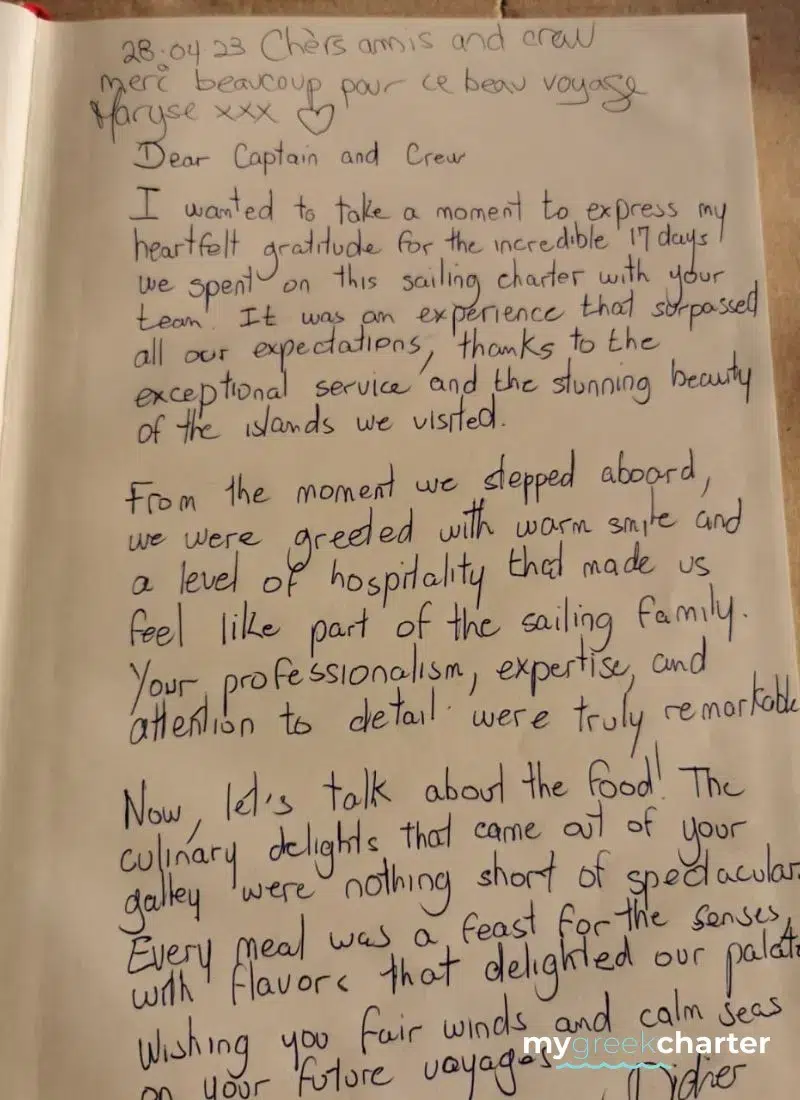 28.04 23 Chèrs amis and crew
merci beaucoup pour ce beau voyage
Maryse xxx ♡
Dear Captain and Crew
I wanted to take a moment to express my
heartfelt gratitude for the incredible 17 days
we spent on this sailing charter with your
team. It was an experience that surpassed
all our expectations, thanks to the
exceptional service and the stunning beauty
of the islands we visited.
From the moment we stepped aboard,
we were greeted with warm smile and
a level of hospitality that made us
feel like part of the sailing family.
Your professionalism, expertise, and
attention to detail were truly remarkable
Now, let's talk about the food! The
culinary delights that came out of your
galley were nothing short of spectacular.
Every meal was a feast for the senses,
with flavors that delighted our palat
Wishing you fair winds and calm seas
on your future voyages
Didier
mygreekcharter